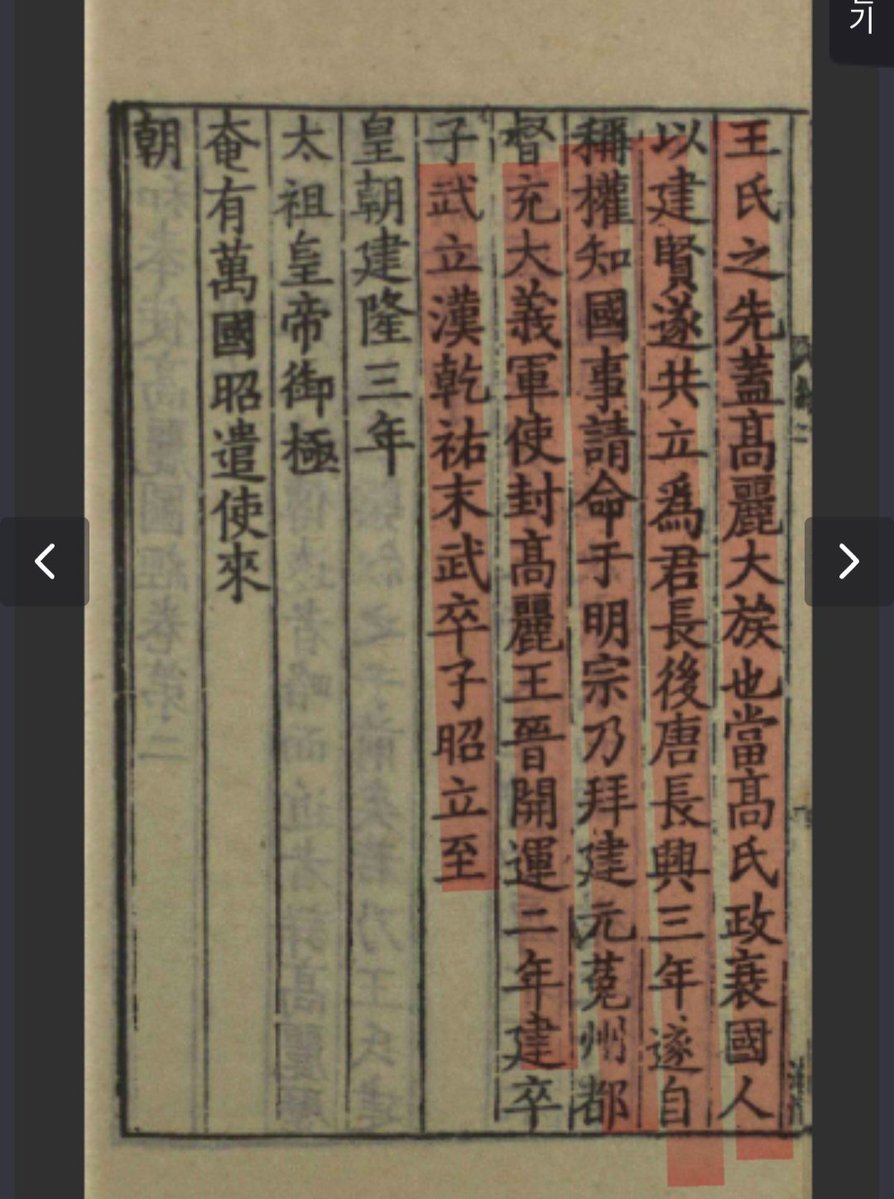 기
王氏之先蓋髙麗大族也當髙氏政衰國人
以建賢遂共立爲君長後唐長興三年遂自
稱權知國事請命于明宗乃拜建元菟州都
督充大義軍使封髙麗王晉開運二年建卒
子武立漢乾祐末武卒子昭立至
皇朝建隆三年
太祖皇帝御極
奄有萬國昭遣使來
朝